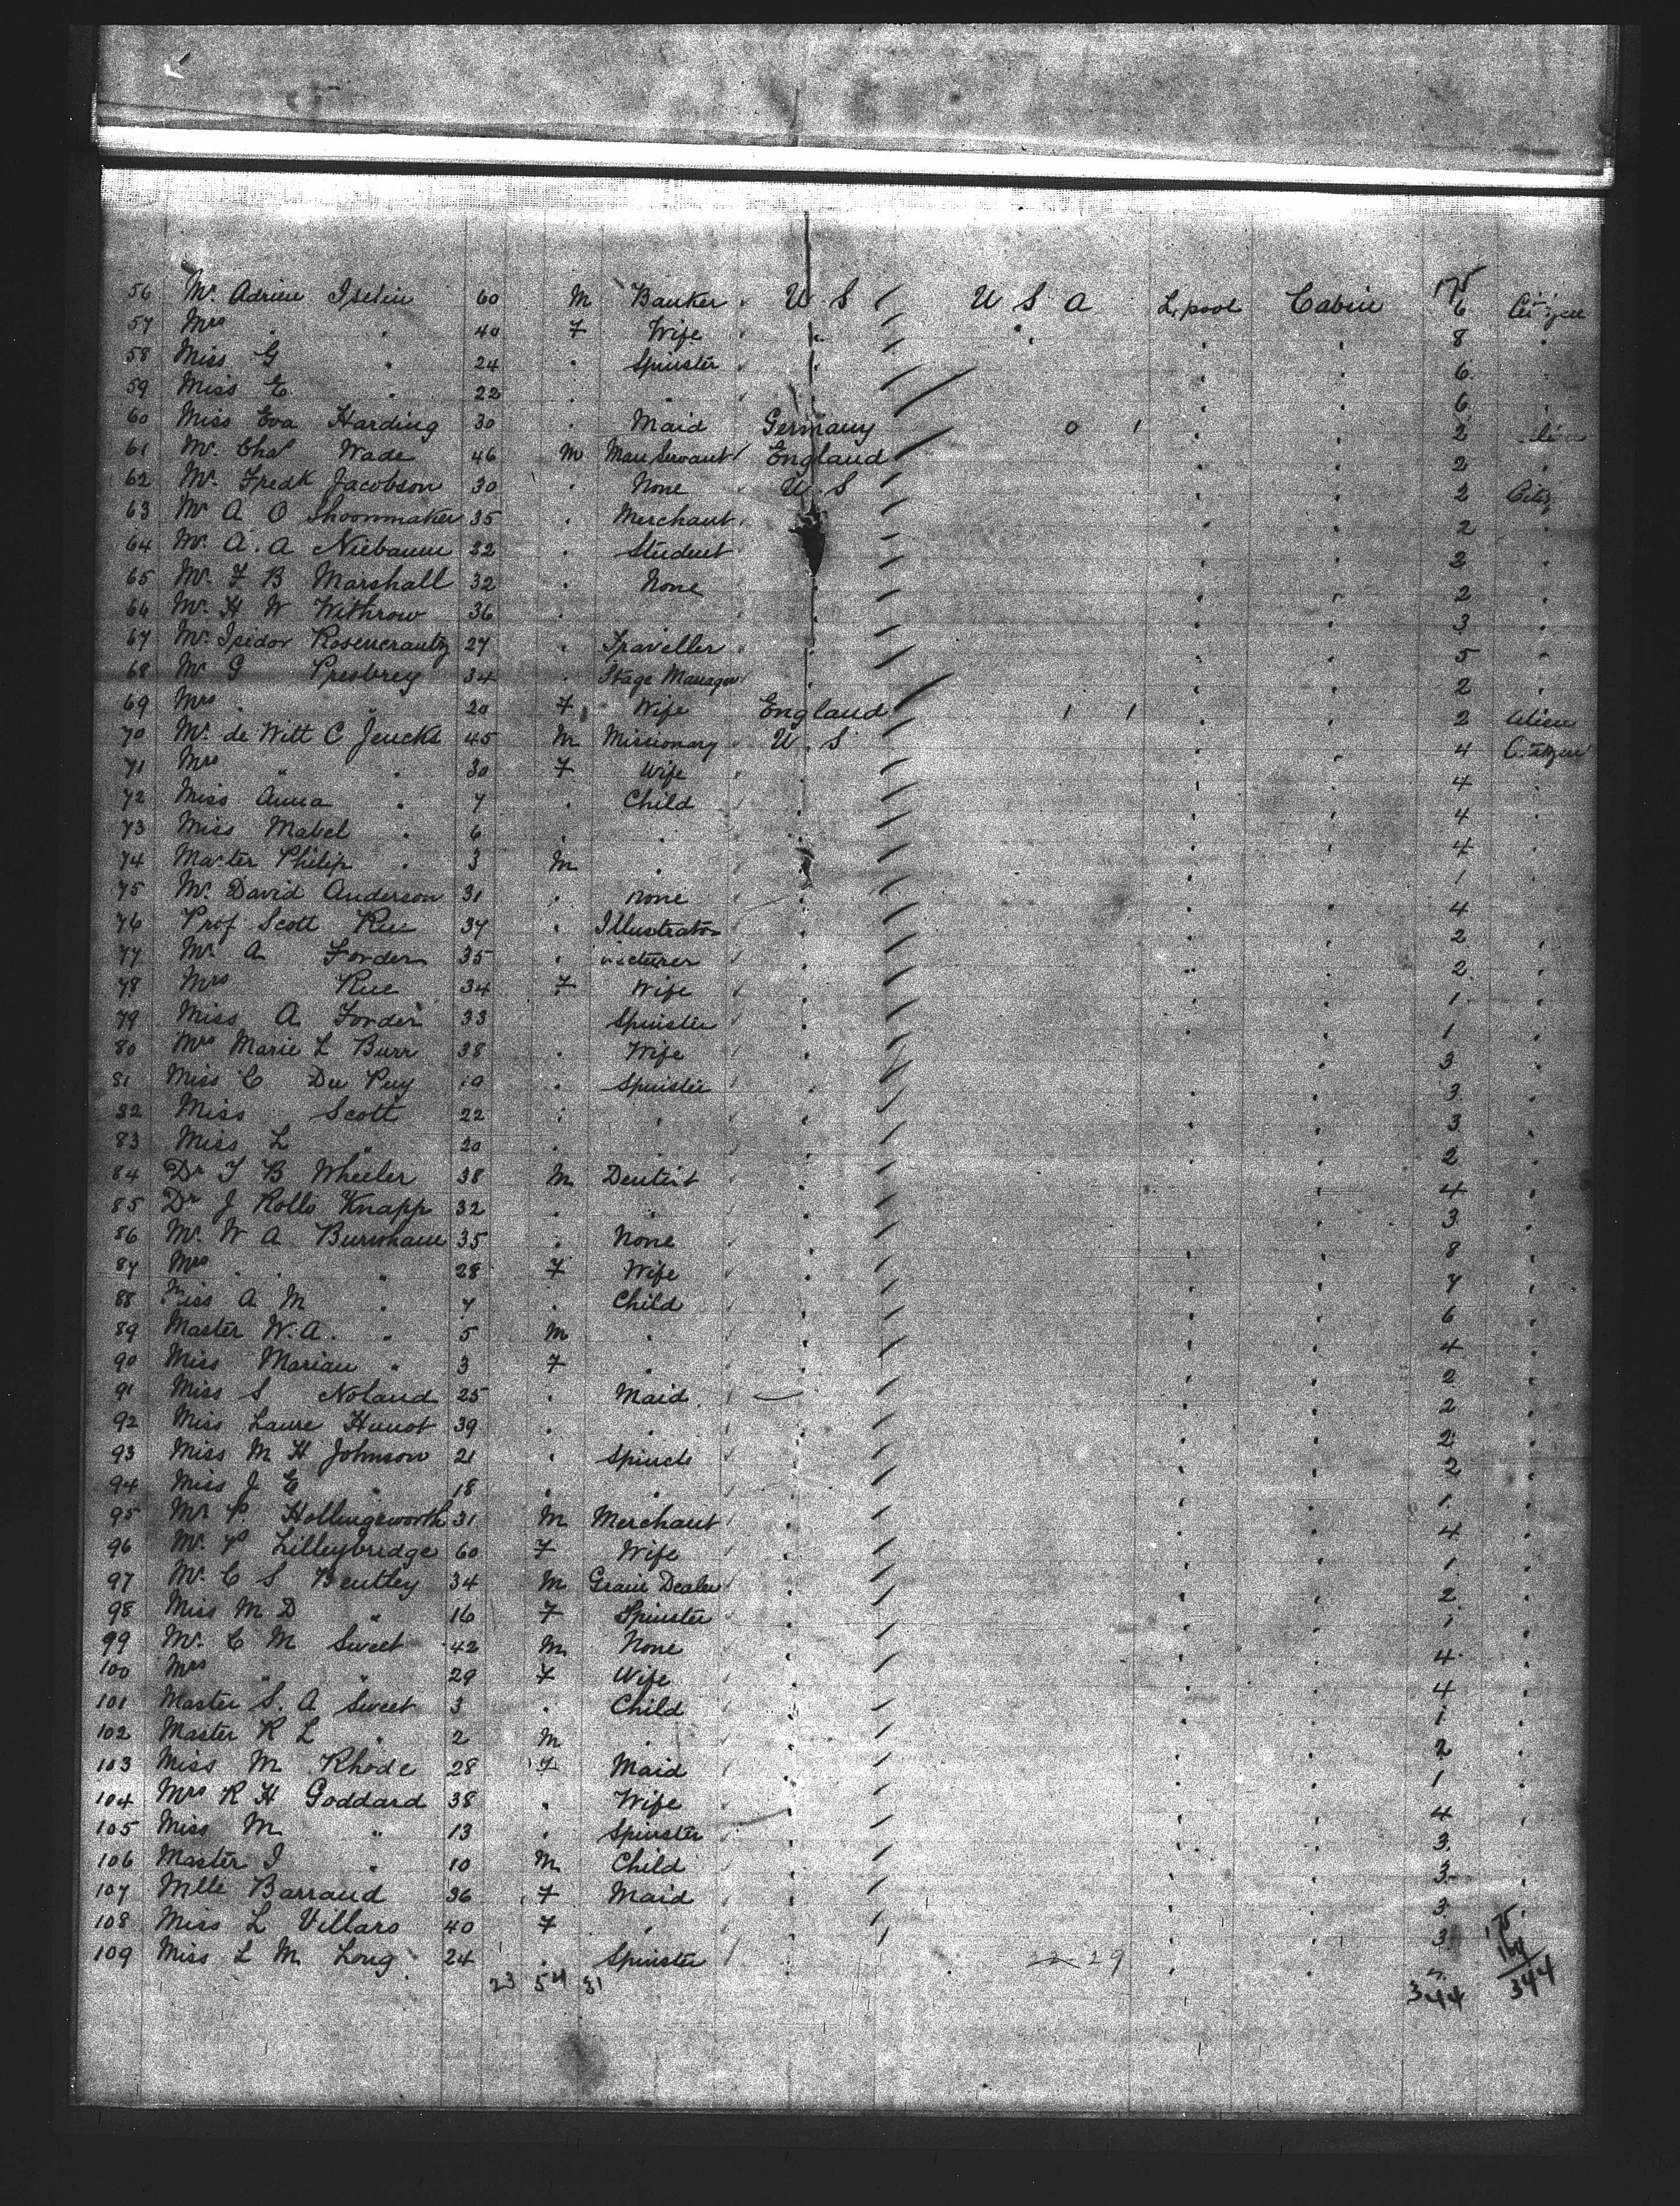 175
56 Mr. Adrian Iselin 60 M Banker U S U S A L.pool Cabin 6 Citizen
57 Mrs " " 40 F Wife " " " " 8 "
58 Miss G " 24 " Spinster " " " 6 "
59 Miss E. " 22 " " " " " 6 "
60 Miss Eva Harding 30 " Maid Germany 0 1 " " 2
61 Mr. Chas Wade 46 M Man Servant England " " 2 "
62 Mr. Fredk Jacobson 30 " None U S " " 2 Citz
63 Mr A O Shoonmaker 35 " Merchant " " 2 "
64 Mr. A. A Niebaum 22 " Student " " 2 "
65 Mr. F B Marshall 32 " None " " " 2 "
66 Mr. H W Withrow 36 " " " " 3 "
67 Mr. Isidor Rosencrantz 27 " Traveller " " " 5 "
68 Mr G Presbrey 34 " Stage Manager " " " 2 "
69 Mrs " " 20 F Wife England 1 1 " " 2 Alien
70 Mr. de Witt C Jencks 45 M Missionary U. S " " 4 Citizen
71 Mrs " " 30 F Wife " " " 4 "
72 Miss Anna " 7 " Child " " " 4 "
73 Miss Mabel " 6 " " " " " 4 "
74 Master Philip " 3 M " " " " 1 "
75 Mr. David Anderson 31 " none " " " 4 "
76 Prof Scott Rue 37 " Illustrator " " " 2 "
77 Mr. A Forder 35 " Lecturer " " " 2 "
78 Mrs Rue 34 F Wife " " " 1 "
79 Miss A Forder 33 Spinster " " " 1 "
80 Mrs Marie L Burr 38 " Wife " " " 3 "
81 Miss C Du Puy 19 " Spinster " " " 3 "
82 Miss Scott 22 " " " " " 3 "
83 Miss L " 20 " " " " " 2 "
84 Dr T B Wheeler 38 M Dentist " " " 4 "
85 Dr J Rollo Knapp 32 " " " " " 3 "
86 Mr. W A Burnham 35 " None " " " 8 "
87 Mrs " " 28 F Wife " " " 7 "
88 Miss A M " 7 " Child " " " 6 "
89 Master W. A. " 5 M " " " " 4 "
90 Miss Marian " 3 F " " " " 2 "
91 Miss S Noland 25 " Maid " " " 2 "
92 Miss Laure Hunot 39 " " " " " 2 "
93 Miss M H Johnson 21 " Spinster " " " 2 "
94 Miss J E " 18 " " " " " 1 "
95 Mr P Hollingsworth 31 M Merchant " " " 4 "
96 Mr. P Lilleybridge 60 F Wife " " " 1 "
97 Mr. C S Bentley 34 M Grain Dealer " " " 2 "
98 Miss M D " 16 F Spinster " " " 1 "
99 Mr. C M Sweet 42 M None " " " 4 "
100 Mrs " " 29 F Wife " " " 4 "
101 Master S. A Sweet 3 " Child " " " 1 "
102 Master R L " 2 M " " " " 2 "
103 Miss M Rhode 28 F Maid " " " 1 "
104 Mrs R H Goddard 38 " Wife " " " 4 "
105 Miss M " 13 " Spinster " " " 3 "
106 Master I " 10 M Child " " " 3 "
107 Mlle Barraud 36 F Maid " " " 3 "
108 Miss L Villars 40 F " " " " 3
109 Miss L M Long 24 " Spinster " 22 29 " "
23 54 31 344
175
169
344